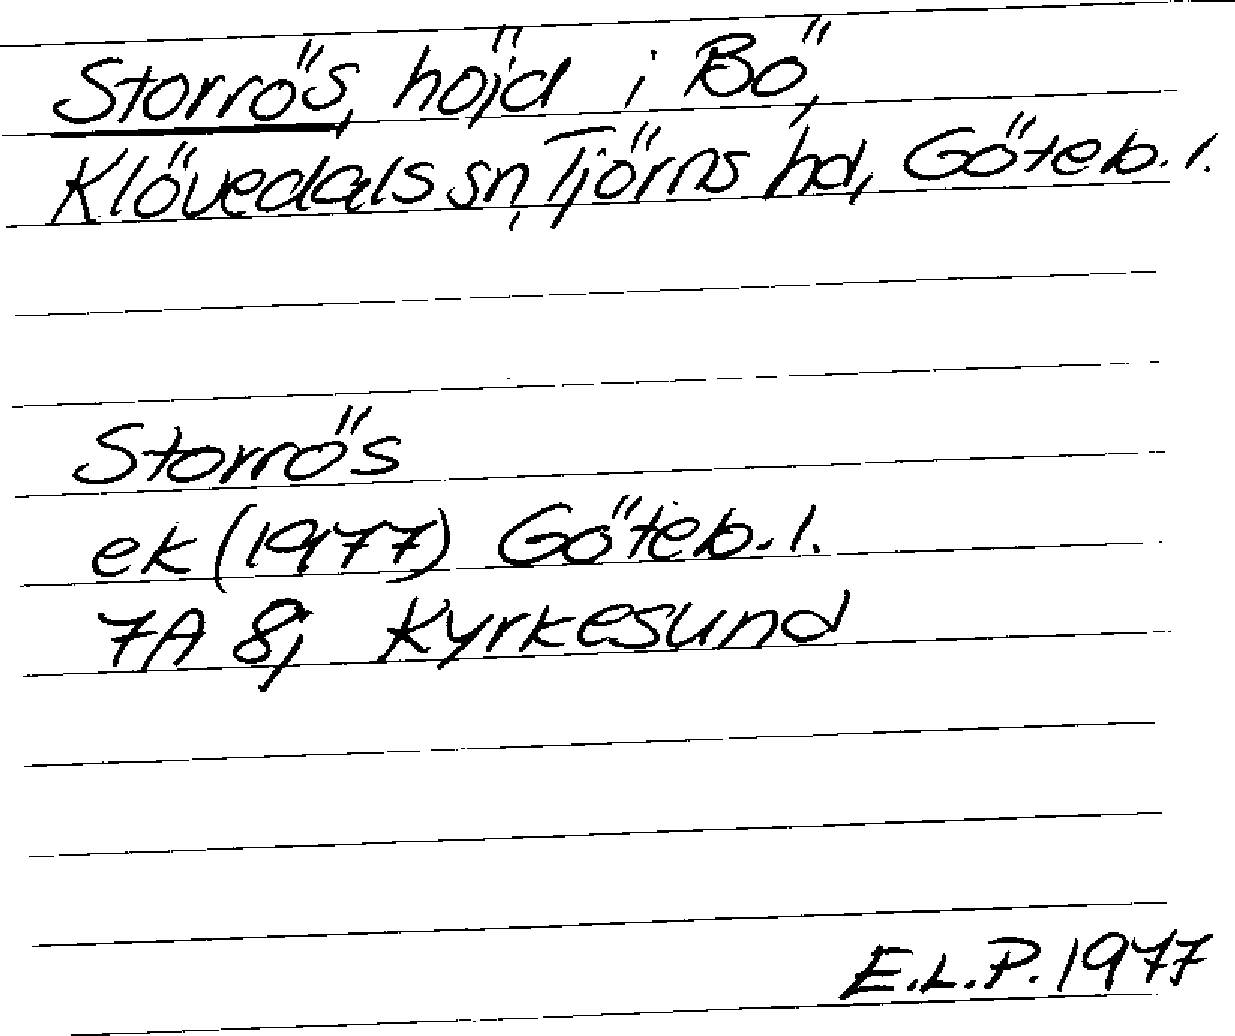 Storrös, höjd i Bö,
Klövedals sn, Tjörns hd, Göteb. l.
Storrös
ek (1977) Göteb. l.
7A 8j Kyrkesund
E.L.P. 1977